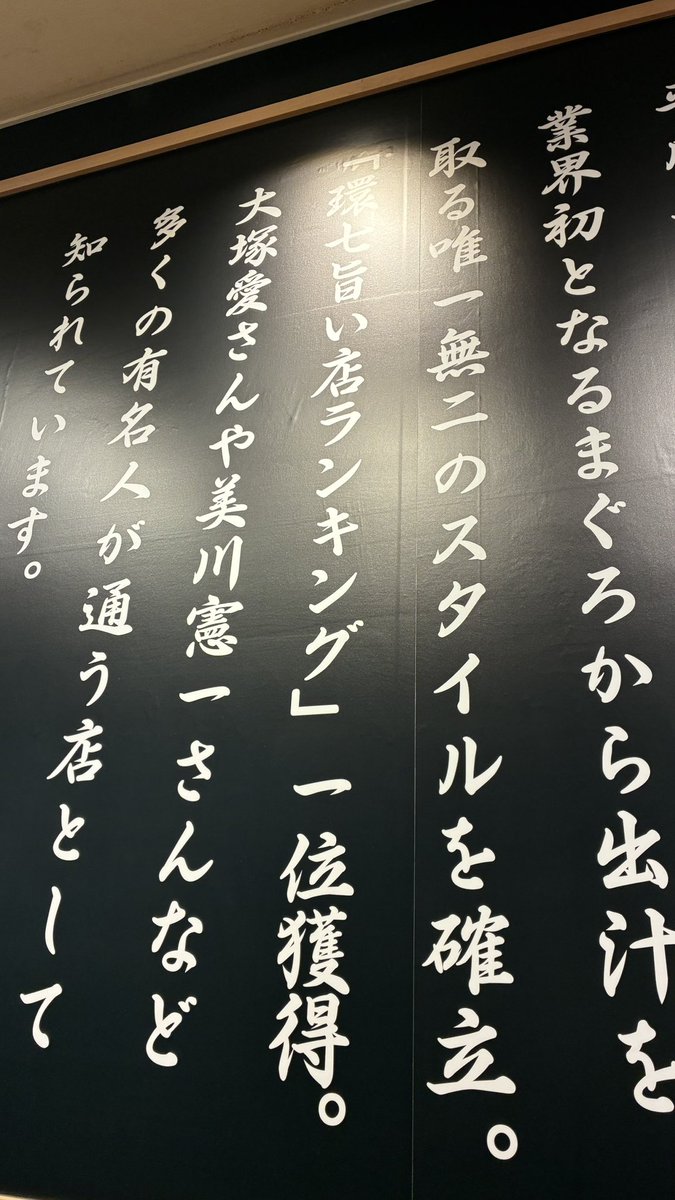 業界初となるまぐろから出汁を
取る唯一無二のスタイルを確立。
「環七旨い店ランキング」一位獲得。
大塚愛さんや美川憲一さんなど
多くの有名人が通う店として
知られています。